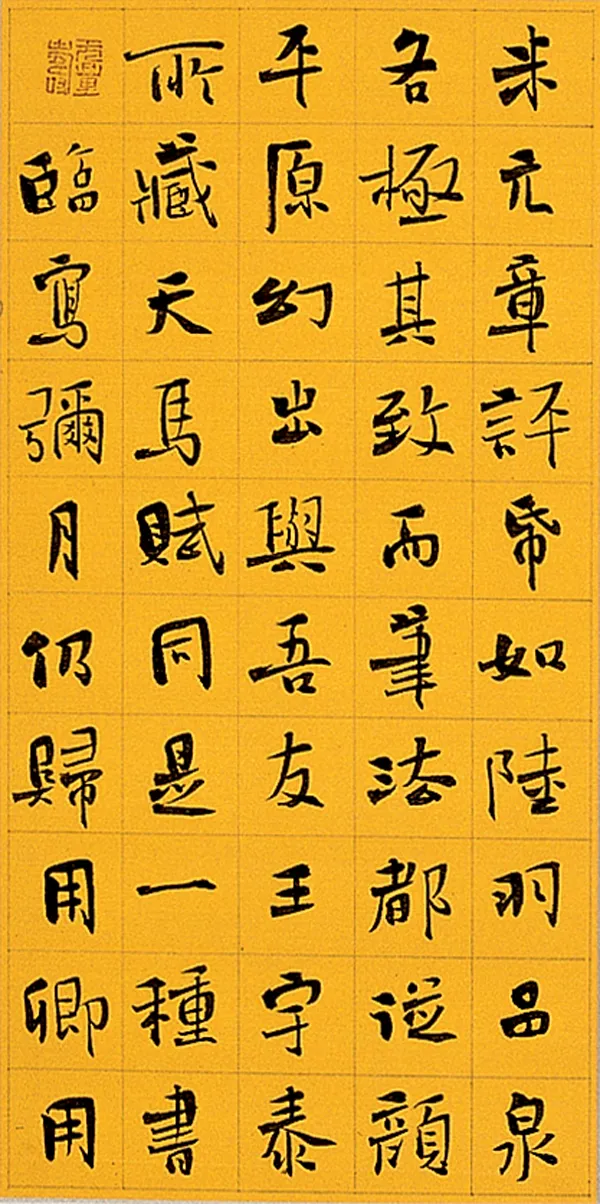 米元章評帋如陸羽品泉
各極其致而筆法都從顔
平原幻出與吾友王宇泰
所藏天馬賦同是一種書
臨寫彌月仍歸用卿用